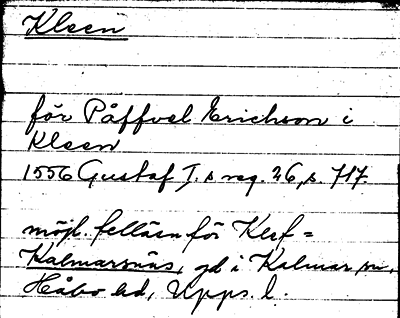 Kleen
för Påffvel Erichson i
Kleen
1556 Gustaf I.s reg. 26, s. 717.
möjl. felläsn för Kerf=
Kalmarnäs, gd i Kalmar sn,
Håbo hd, Upps. l.